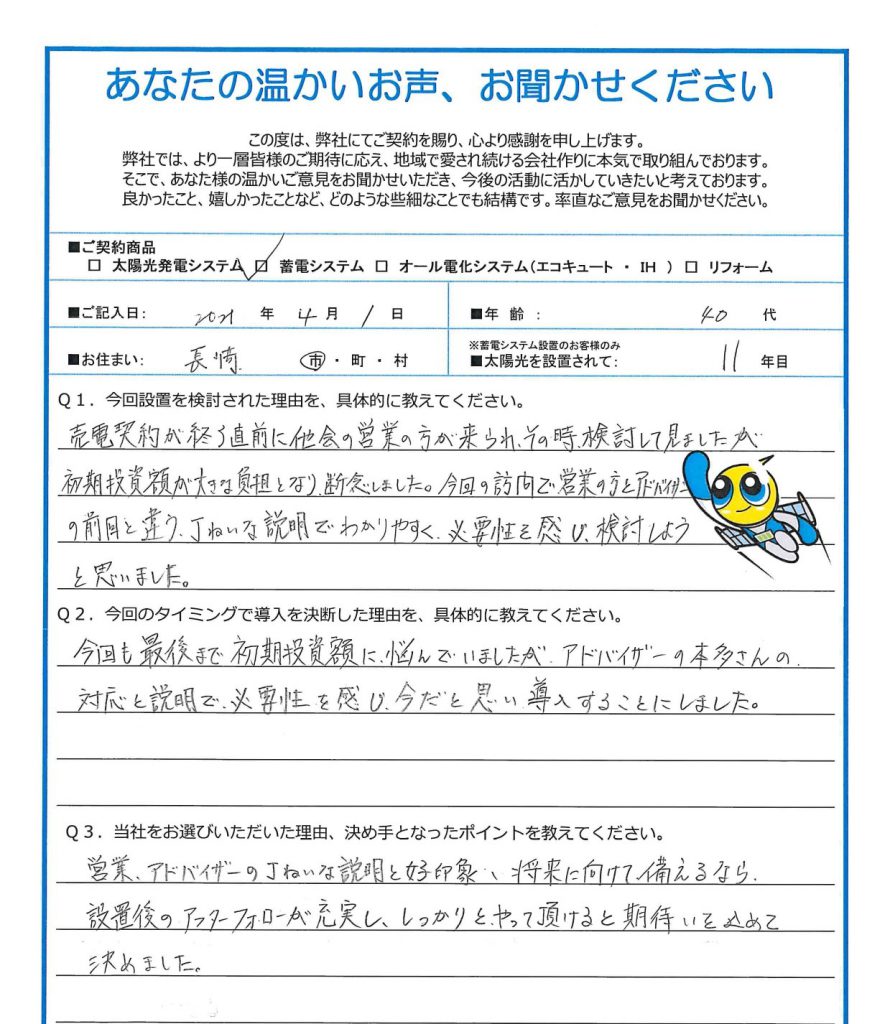 あなたの温かいお声、お聞かせください
この度は、弊社にてご契約を賜り、心より感謝を申し上げます。
弊社では、より一層皆様のご期待に応え、地域で愛され続ける会社作りに本気で取り組んでおります。
そこで、あなた様の温かいご意見をお聞かせいただき、今後の活動に活かしていきたいと考えております。
良かったこと、嬉しかったことなど、どのような些細なことでも結構です。率直なご意見をお聞かせください。
■ご契約商品
□ 太陽光発電システム ☑ 蓄電システム □ オール電化システム(エコキュート ・ IH ) □ リフォーム
■ご記入日: 2021 年 4 月 1 日 ■年 齢 : 40 代
※蓄電システム設置のお客様のみ
■お住まい: 長崎 市 ・ 町 ・ 村 ■太陽光を設置されて: 11 年目
Q1. 今回設置を検討された理由を、具体的に教えてください。
売電契約が終る直前に他会の営業の方が来られ、その時、検討して見ましたが
初期投資額が大きな負担となり、断念しました。今回の訪問で営業の方とアドバイザー
の前回と違う、丁ねいな説明でわかりやすく、必要性を感じ、検討しよう
と思いました。
Q2. 今回のタイミングで導入を決断した理由を、具体的に教えてください。
今回も最後まで初期投資額に、悩んでいましたが、アドバイザーの本多さんの、
対応と説明で、必要性を感じ、今だと思い、導入することにしました。
Q3. 当社をお選びいただいた理由、決め手となったポイントを教えてください。
営業、アドバイザーの丁ねいな説明と好印象、将来に向けて備えるなら、
設置後のアフターフォローが充実し、しっかりとやって頂けると期待いを込めて
決めました。